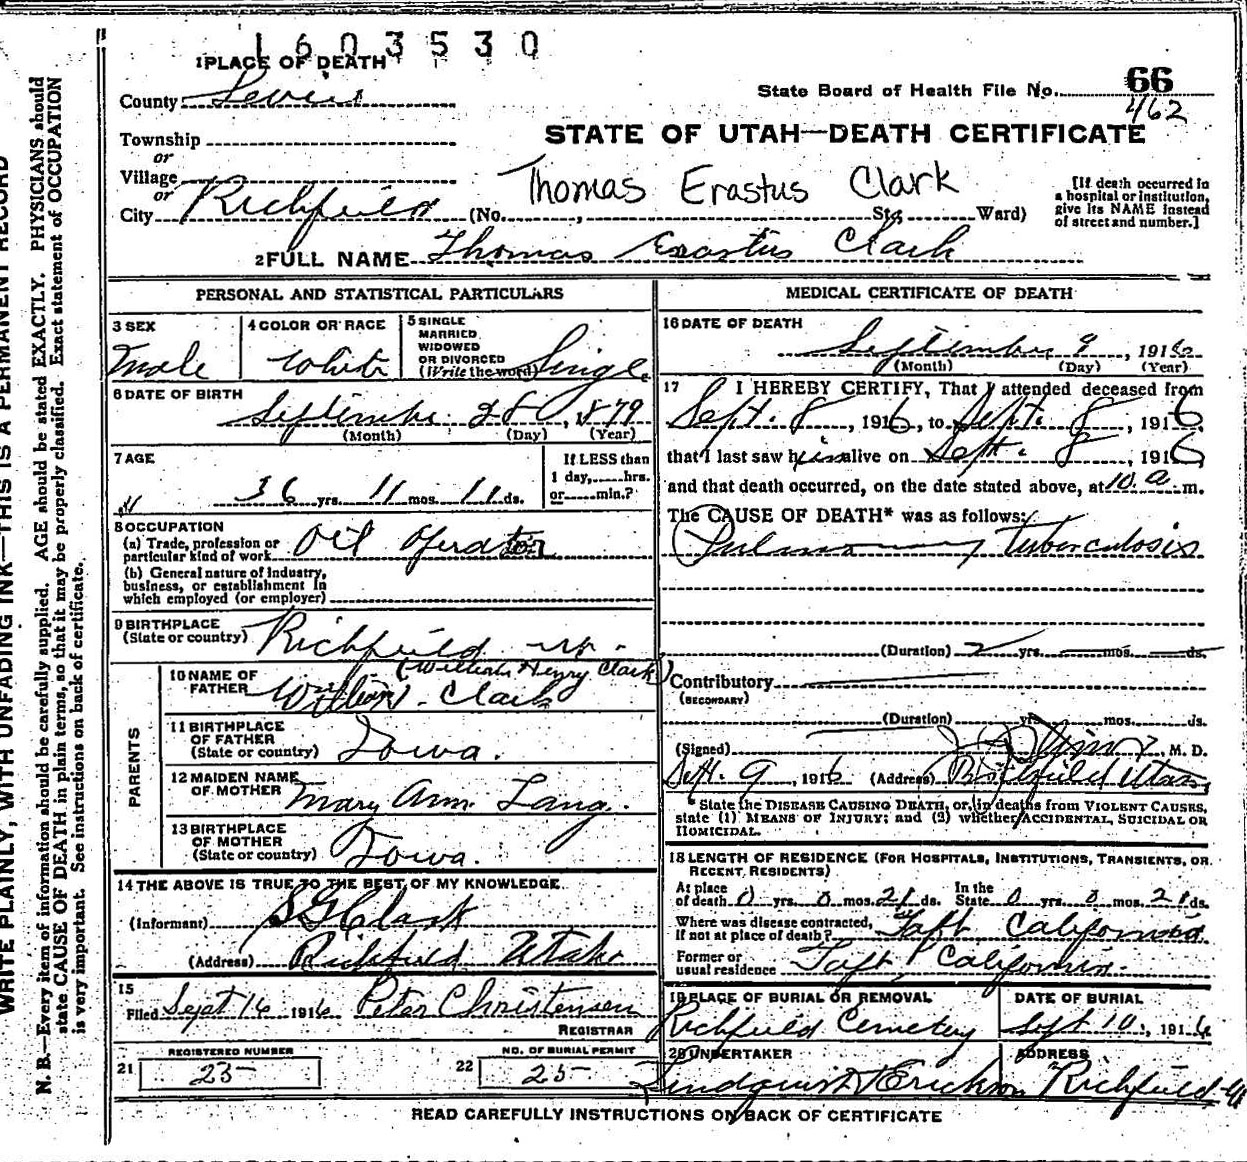 1603530
1 PLACE OF DEATH
County Sevier
State Board of Health File No. 66
462
Township
or
Village
or
City Richfield (No. , St. Ward)
STATE OF UTAH—DEATH CERTIFICATE
Thomas Erastus Clark
[If death occurred in
a hospital or institution,
give its NAME instead
of street and number.]
2 FULL NAME Thomas Erastus Clark
PERSONAL AND STATISTICAL PARTICULARS
3 SEX
Male
4 COLOR OR RACE
White
5 SINGLE
MARRIED
WIDOWED
OR DIVORCED
(Write the word) Single
6 DATE OF BIRTH
September 28, 1879
(Month) (Day) (Year)
7 AGE
36 yrs. 11 mos. 11 ds.
If LESS than
1 day, hrs.
or min.?
8 OCCUPATION
(a) Trade, profession or
particular kind of work Oil Operator
(b) General nature of industry,
business, or establishment in
which employed (or employer)
9 BIRTHPLACE
(State or country) Richfield Ut.
PARENTS
(William Henry Clark)
10 NAME OF
FATHER William Clark
11 BIRTHPLACE
OF FATHER
(State or country) Iowa.
12 MAIDEN NAME
OF MOTHER Mary Ann Lang.
13 BIRTHPLACE
OF MOTHER
(State or country) Iowa.
14 THE ABOVE IS TRUE TO THE BEST OF MY KNOWLEDGE
(Informant) S G Clark
(Address) Richfield Utah
15
Filed Sept 16 1916 Peter Christensen
REGISTRAR
REGISTERED NUMBER
21 25
NO. OF BURIAL PERMIT
22 25
MEDICAL CERTIFICATE OF DEATH
16 DATE OF DEATH
September 9, 1916
(Month) (Day) (Year)
17 I HEREBY CERTIFY, That I attended deceased from
Sept. 8, 1916, to Sept. 8, 1916,
that I last saw him alive on Sept. 8, 1916,
and that death occurred, on the date stated above, at 10 a. m.
The CAUSE OF DEATH* was as follows:
Pulmonary tuberculosis
(Duration) 2 yrs. mos. ds.
Contributory
(SECONDARY)
(Duration) yrs. mos. ds.
(Signed) M. D.
Sept. 9, 1916 (Address) Richfield Utah
*State the DISEASE CAUSING DEATH, or, in deaths from VIOLENT CAUSES,
state (1) MEANS OF INJURY; and (2) whether ACCIDENTAL, SUICIDAL OR
HOMICIDAL.
18 LENGTH OF RESIDENCE (FOR HOSPITALS, INSTITUTIONS, TRANSIENTS, OR
RECENT RESIDENTS)
At place
of death 0 yrs. 0 mos. 21 ds. In the
State 0 yrs. 0 mos. 21 ds.
Where was disease contracted,
If not at place of death? Taft California
Former or
usual residence Taft, California.
19 PLACE OF BURIAL OR REMOVAL
Richfield Cemetery
DATE OF BURIAL
Sept 10, 1916
20 UNDERTAKER
Lindquist & Erickson
ADDRESS
Richfield Ut
READ CAREFULLY INSTRUCTIONS ON BACK OF CERTIFICATE
WRITE PLAINLY, WITH UNFADING INK—THIS IS A PERMANENT RECORD
N. B.—Every item of information should be carefully supplied. AGE should be stated EXACTLY. PHYSICIANS should
state CAUSE OF DEATH in plain terms, so that it may be properly classified. Exact statement of OCCUPATION
is very important. See instructions on back of certificate.